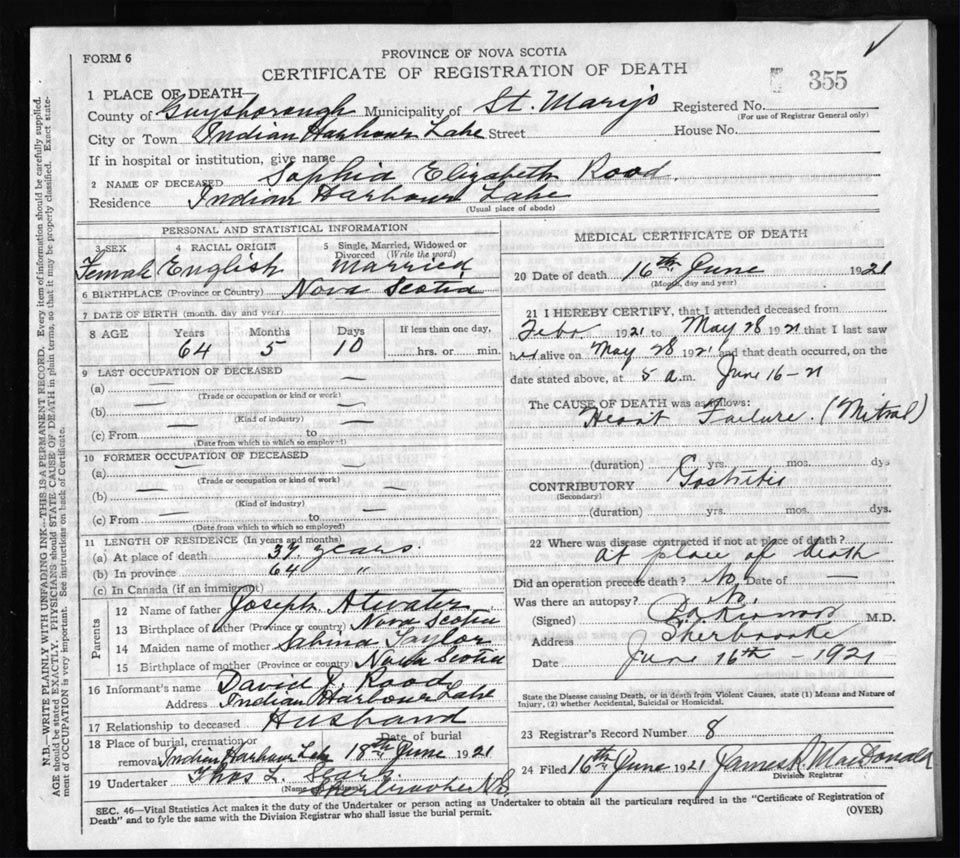 FORM 6
PROVINCE OF NOVA SCOTIA
CERTIFICATE OF REGISTRATION OF DEATH
355
1 PLACE OF DEATH—
County of Guysborough Municipality of St. Mary's Registered No.
(For use of Registrar General only)
City or Town Indian Harbour Lake Street House No.
If in hospital or institution, give name
2 NAME OF DECEASED Sophia Elizabeth Rood.
Residence Indian Harbour Lake
(Usual place of abode)
PERSONAL AND STATISTICAL INFORMATION
3 SEX 4 RACIAL ORIGIN 5 Single, Married, Widowed or Divorced (Write the word)
Female English Married
6 BIRTHPLACE (Province or Country) Nova Scotia
7 DATE OF BIRTH (month, day and year)
8 AGE Years Months Days If less than one day,
64 5 10 hrs. or min.
9 LAST OCCUPATION OF DECEASED
(a) —
(Trade or occupation or kind of work)
(b) —
(Kind of industry)
(c) From — to —
(Date from which to which so employed)
10 FORMER OCCUPATION OF DECEASED
(a) —
(Trade or occupation or kind of work)
(b) —
(Kind of industry)
(c) From — to —
(Date from which to which so employed)
11 LENGTH OF RESIDENCE (In years and months)
(a) At place of death 37 years.
(b) In province 64 "
(c) In Canada (if an immigrant)
Parents
12 Name of father Joseph Atwater
13 Birthplace of father (Province or country) Nova Scotia
14 Maiden name of mother Sabina Taylor
15 Birthplace of mother (Province or country) Nova Scotia
16 Informant's name David J. Rood
Address Indian Harbour Lake
17 Relationship to deceased Husband
18 Place of burial, cremation or removal Indian Harbour Lake Date of burial 18th June 1921
19 Undertaker Thos L.
(Name
Sherbrooke N.S.
MEDICAL CERTIFICATE OF DEATH
20 Date of death 16th June 1921
(Month, day and year)
21 I HEREBY CERTIFY, that I attended deceased from
Feb. 1921 to May 28 1921 that I last saw
her alive on May 28 1921 and that death occurred, on the
date stated above, at 5 a.m. June 16-21
The CAUSE OF DEATH was as follows:
Heart Failure. (Mitral)
(duration) yrs. mos. dys
CONTRIBUTORY Gastritis
(Secondary)
(duration) yrs. mos. dys.
22 Where was disease contracted if not at place of death?
at place of death
Did an operation precede death? No. Date of —
Was there an autopsy? No.
(Signed) M.D.
Address Sherbrooke
Date June 16th - 1921
State the Disease causing Death, or in death from Violent Causes, state (1) Means and Nature of
Injury, (2) whether Accidental, Suicidal or Homicidal.
23 Registrar's Record Number 8
24 Filed 16th June 1921 James R. MacDonald
Division Registrar
SEC. 46—Vital Statistics Act makes it the duty of the Undertaker or person acting as Undertaker to obtain all the particulars required in the "Certificate of Registration of
Death" and to fyle the same with the Division Registrar who shall issue the burial permit.
(OVER)
N.B.—WRITE PLAINLY WITH UNFADING INK—THIS IS A PERMANENT RECORD. Every item of information should be carefully supplied.
AGE should be stated EXACTLY. PHYSICIANS should STATE CAUSE OF DEATH in plain terms, so that it may be properly classified. Exact state-
ment of OCCUPATION is very important. See instructions on back of Certificate.